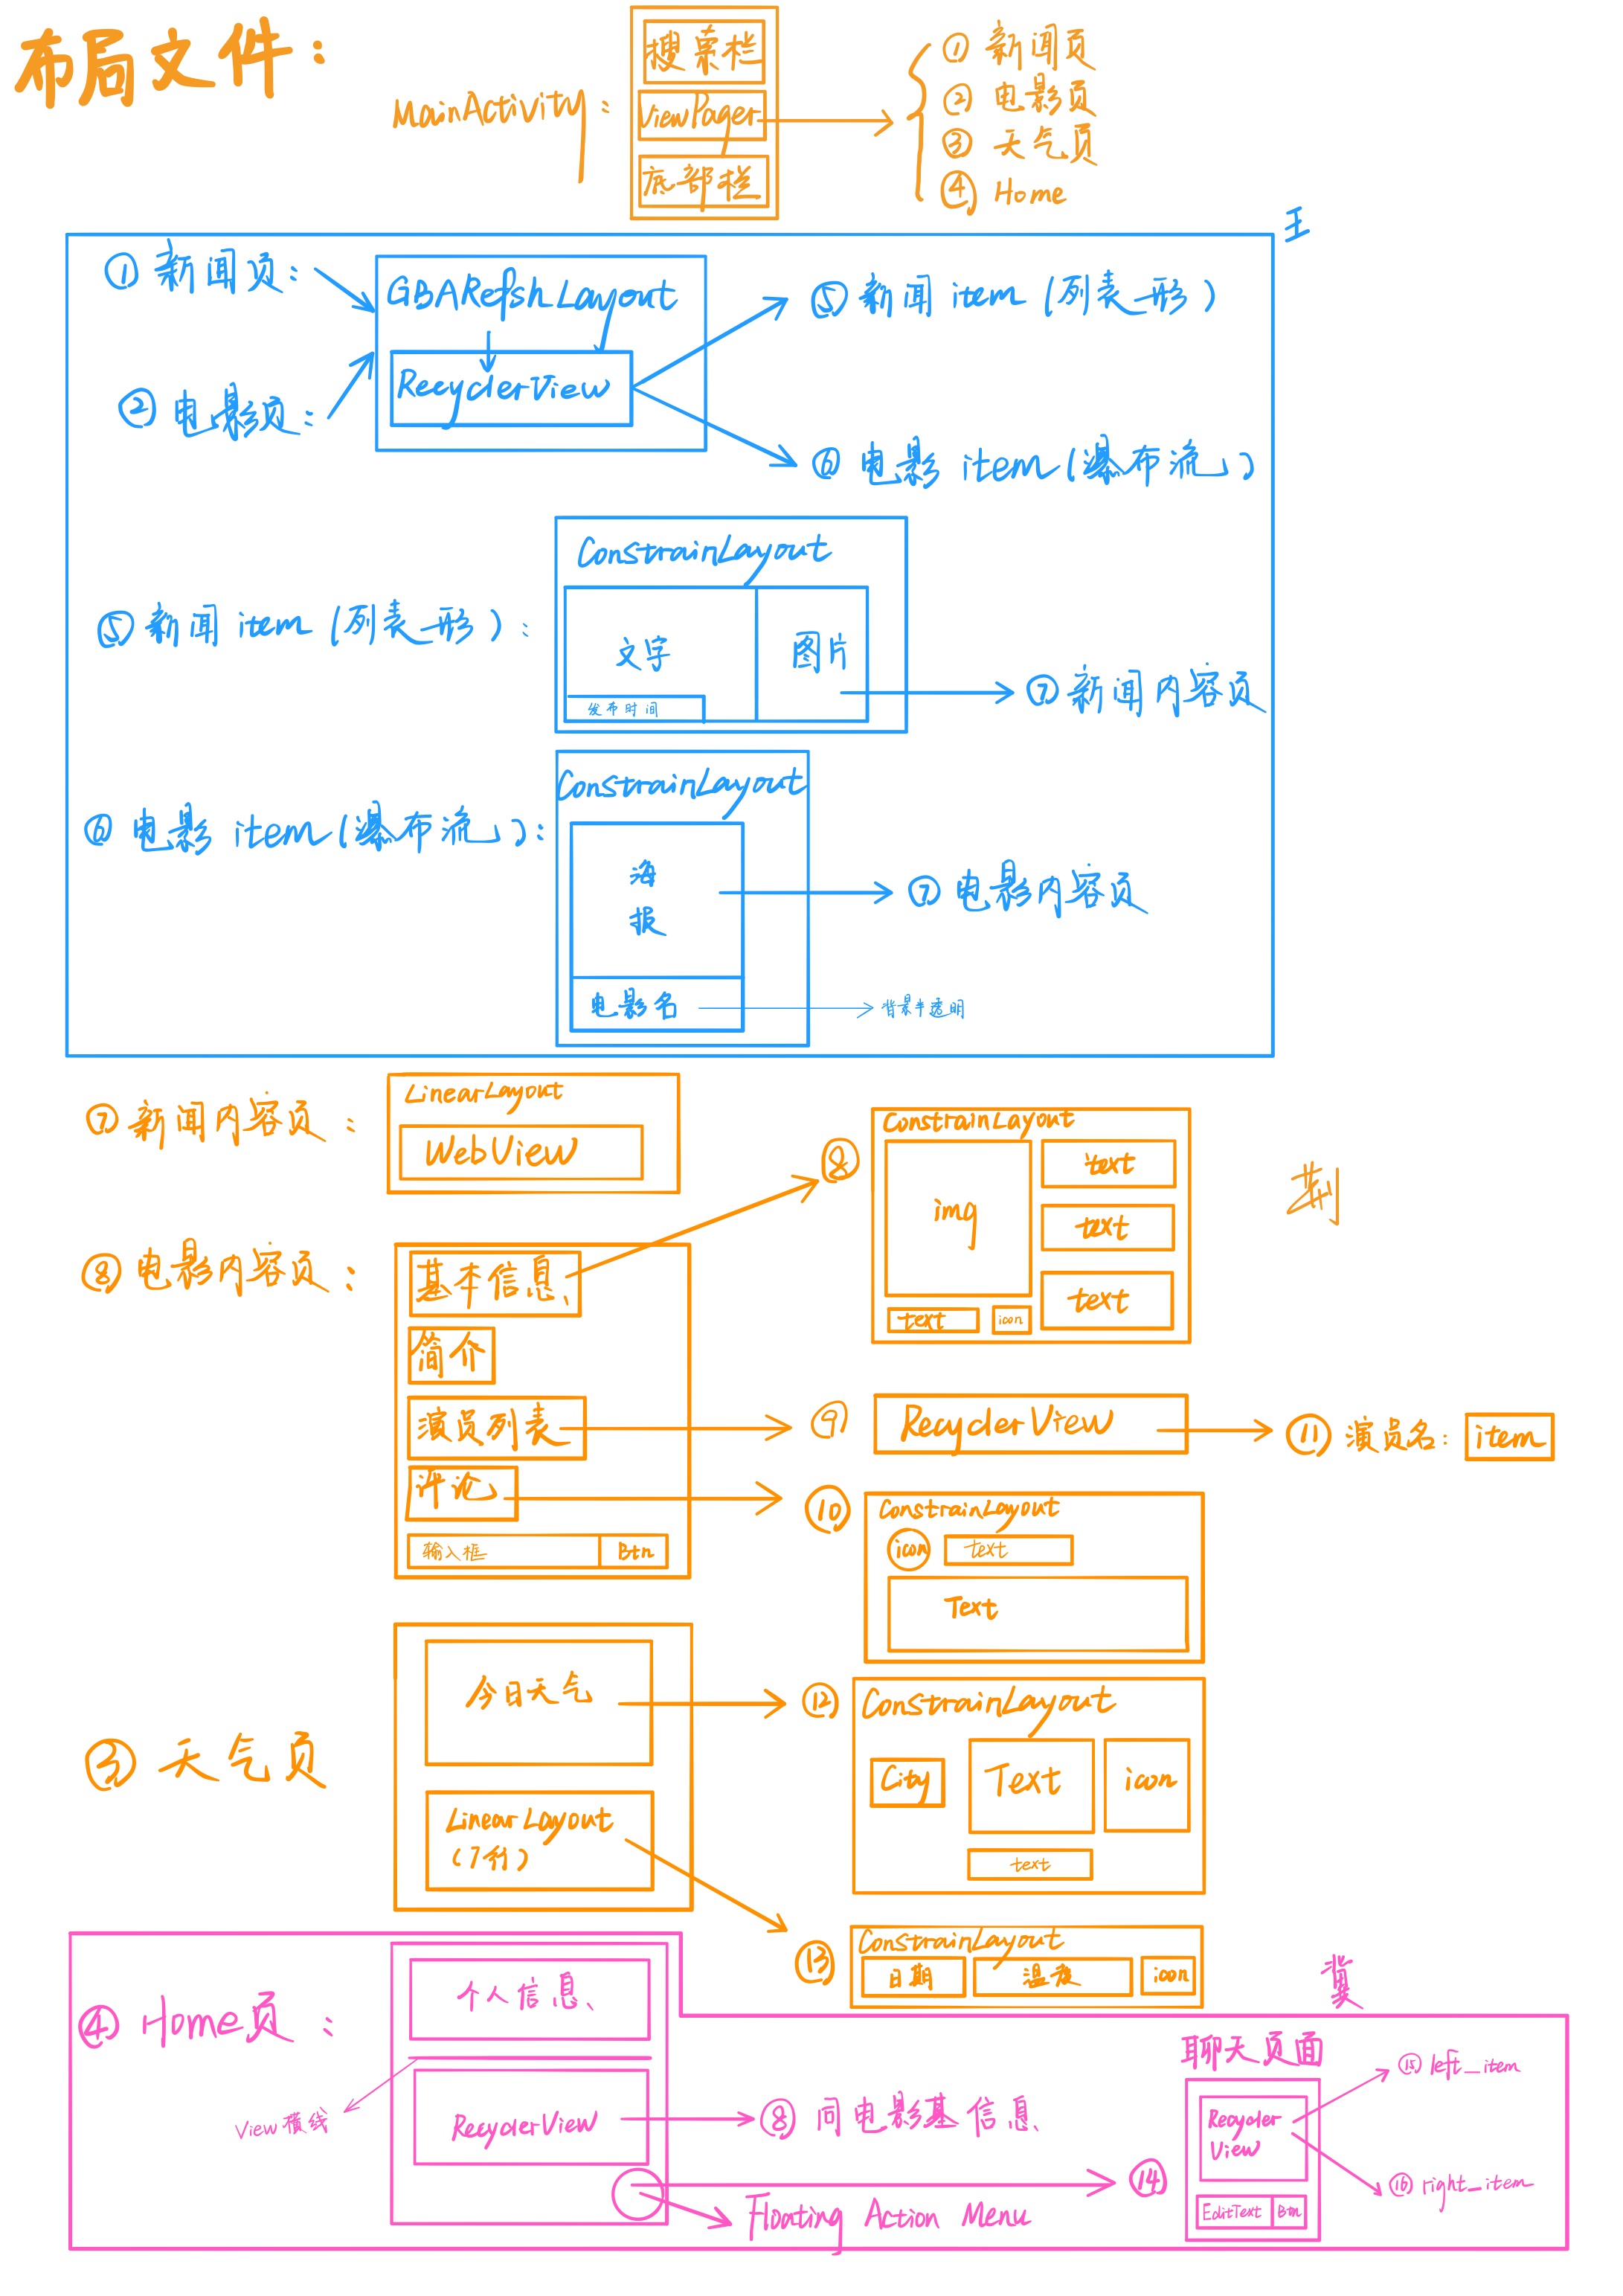 布局文件：
MainActivity：
搜索栏
ViewPager
底部栏
① 新闻页
② 电影页
③ 天气页
④ Home
王
① 新闻页：
② 电影页：
GBARefshLayout
RecyclerView
⑤ 新闻 item (列表形)
⑥ 电影 item (瀑布流)
⑤ 新闻 item (列表形)：
ConstrainLayout
文字
图片
发布时间
⑦ 新闻内容页
⑥ 电影 item (瀑布流)：
ConstrainLayout
海
报
电影名
⑦ 电影内容页
背景半透明
⑦ 新闻内容页：
LinearLayout
WebView
⑧ 电影内容页：
基本信息
简介
演员列表
评论
输入框
Btn
⑧
ConstrainLayout
img
text
text
text
text
icon
⑨
RecyclerView
⑪ 演员名：item
⑩
ConstrainLayout
icon
text
Text
③ 天气页
今日天气
LinearLayout
(7行)
⑫
ConstrainLayout
City
Text
icon
text
⑬
ConstrainLayout
日期
温度
icon
冀
④ Home页：
个人信息
View 横线
RecyclerView
⑧ 同电影基信息
Floating Action Menu
⑭
聊天页面
Recycler
View
EditText
Btn
⑮ left_item
⑯ right_item